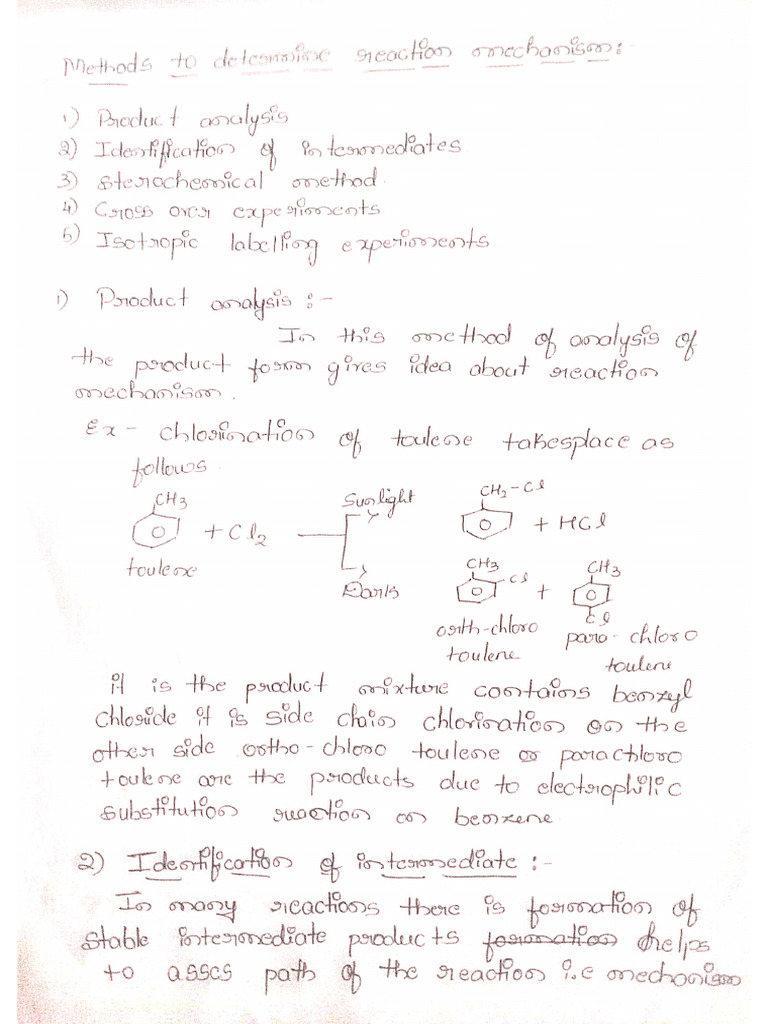 Methods to determine reaction mechanism:-
1) Product analysis
2) Identification of intermediates
3) sterochemical method.
4) Cross over experiments
5) Isotropic labelling experiments
1) Product analysis :-
In this method of analysis of
the product form gives idea about reaction
mechanism.
Ex - chlorination of toulene takesplace as
follows
CH3
+ Cl2
toulene
Sunlight
CH2-Cl
+ HCl
Dark
CH3
Cl
+
CH3
Cl
orth-chloro
toulene
para-chloro
toulene
if is the product mixture contains benzyl
chloride it is side chain chlorination on the
other side ortho-chloro toulene or parachloro
toulene are the products due to electrophilic
substitution reaction on benzene
2) Identification of intermediate :-
In many reactions there is formation of
stable intermediate products formation helps
to asses path of the reaction i.e mechanism